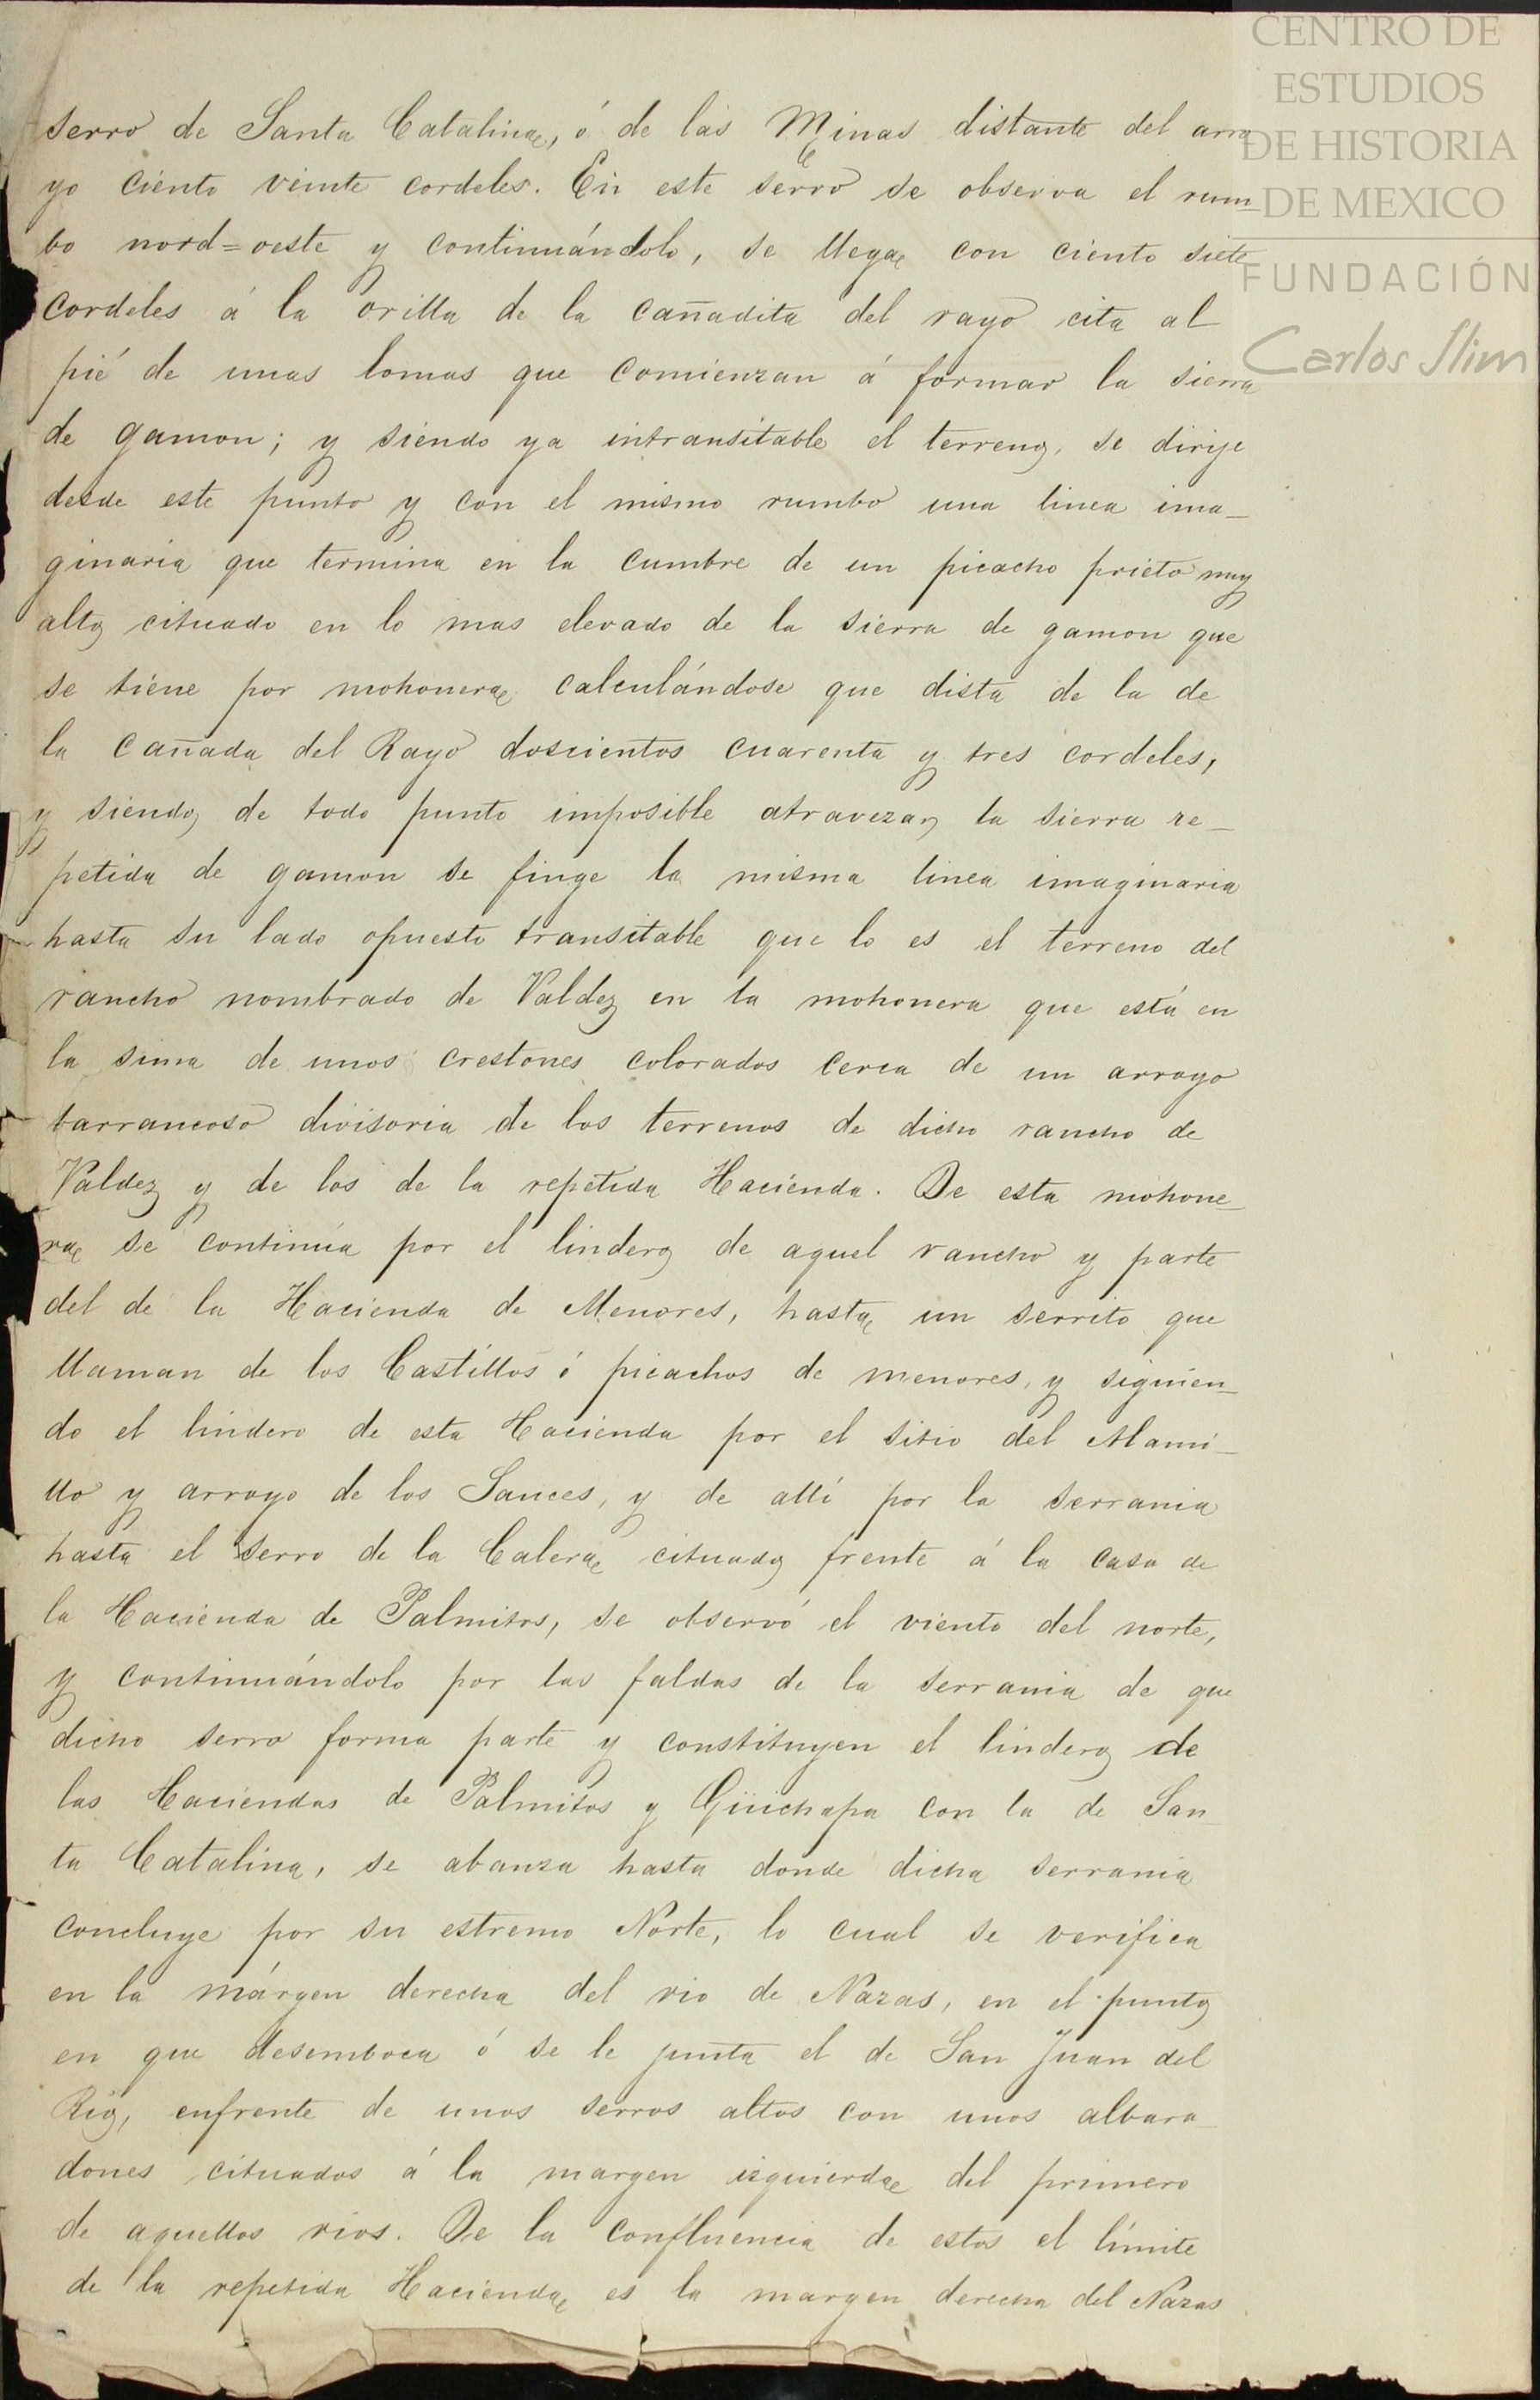 CENTRO DE
ESTUDIOS
DE HISTORIA
DE MEXICO
FUNDACIÓN
Carlos Slim
serro de Santa Catalina, ó de las Minas distante del arro
yo ciento veinte cordeles. En este serro se observa el rum
bo nord=oeste y continuándolo, se llega con ciento siete
cordeles á la orilla de la cañadita del rayo cita al
pié de unas lomas que comienzan á formar la sierra
de gamon; y siendo ya intransitable el terreno, se dirije
desde este punto y con el mismo rumbo una linea ima_
ginaria que termina en la cumbre de un picacho prieto muy
alto cituado en lo mas elevado de la sierra de gamon que
se tiene por mohonera calculándose que dista de la de
la Cañada del Rayo doscientos cuarenta y tres cordeles,
y siendo, de todo punto imposible atravezar, la sierra re_
petida de gamon se finge la misma linea imaginaria
hasta su lado opuesto transitable que lo es el terreno del
rancho nombrado de Valdez en la mohonera que está en
la sima de unos crestones colorados cerca de un arroyo
barrancoso divisoria de los terrenos de dicho rancho de
Valdez y de los de la repetida Hacienda. De esta mohone_
ra se continúa por el lindero de aquel rancho y parte
del de la Hacienda de Menores, hasta un serrito que
llaman de los Castillos ó picachos de menores, y siguien_
do el lindero de esta Hacienda por el sitio del Alami_
llo y arroyo de los Sauces, y de allí por la serrania
hasta el serro de la Calera cituado frente á la casa de
la Hacienda de Palmitos, se observó el viento del norte,
y continuándolo por las faldas de la serrania de que
dicho serro forma parte y constituyen el lindero de
las Haciendas de Palmitos y Güichapa con la de San_
ta Catalina, se abanza hasta donde dicha serrania
concluye por su estremo Norte, lo cual se verifica
en la márgen derecha del rio de Nazas, en el punto
en que desemboca ó se le junta el de San Juan del
Rio, enfrente de unos serros altos con unos albara_
dones cituados á la margen izquierda del primero
de aquellos rios. De la confluencia de estos el límite
de la repetida Hacienda es la margen derecha del Nazas